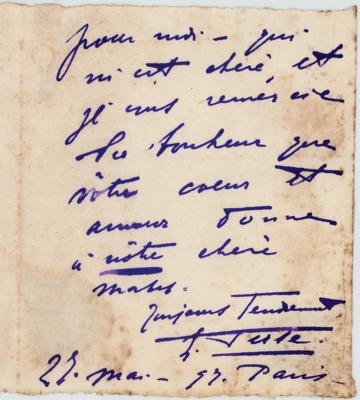 pour moi – qui
m'est chère, et
je vous remercie
du bonheur que
vôtre coeur et
amour donne
à nôtre chère
Toujours Tendrement
27. Mai – 97. Paris –